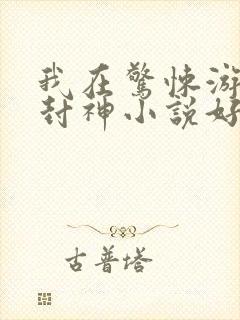 我在驚悚游
封神小說好
古普塔